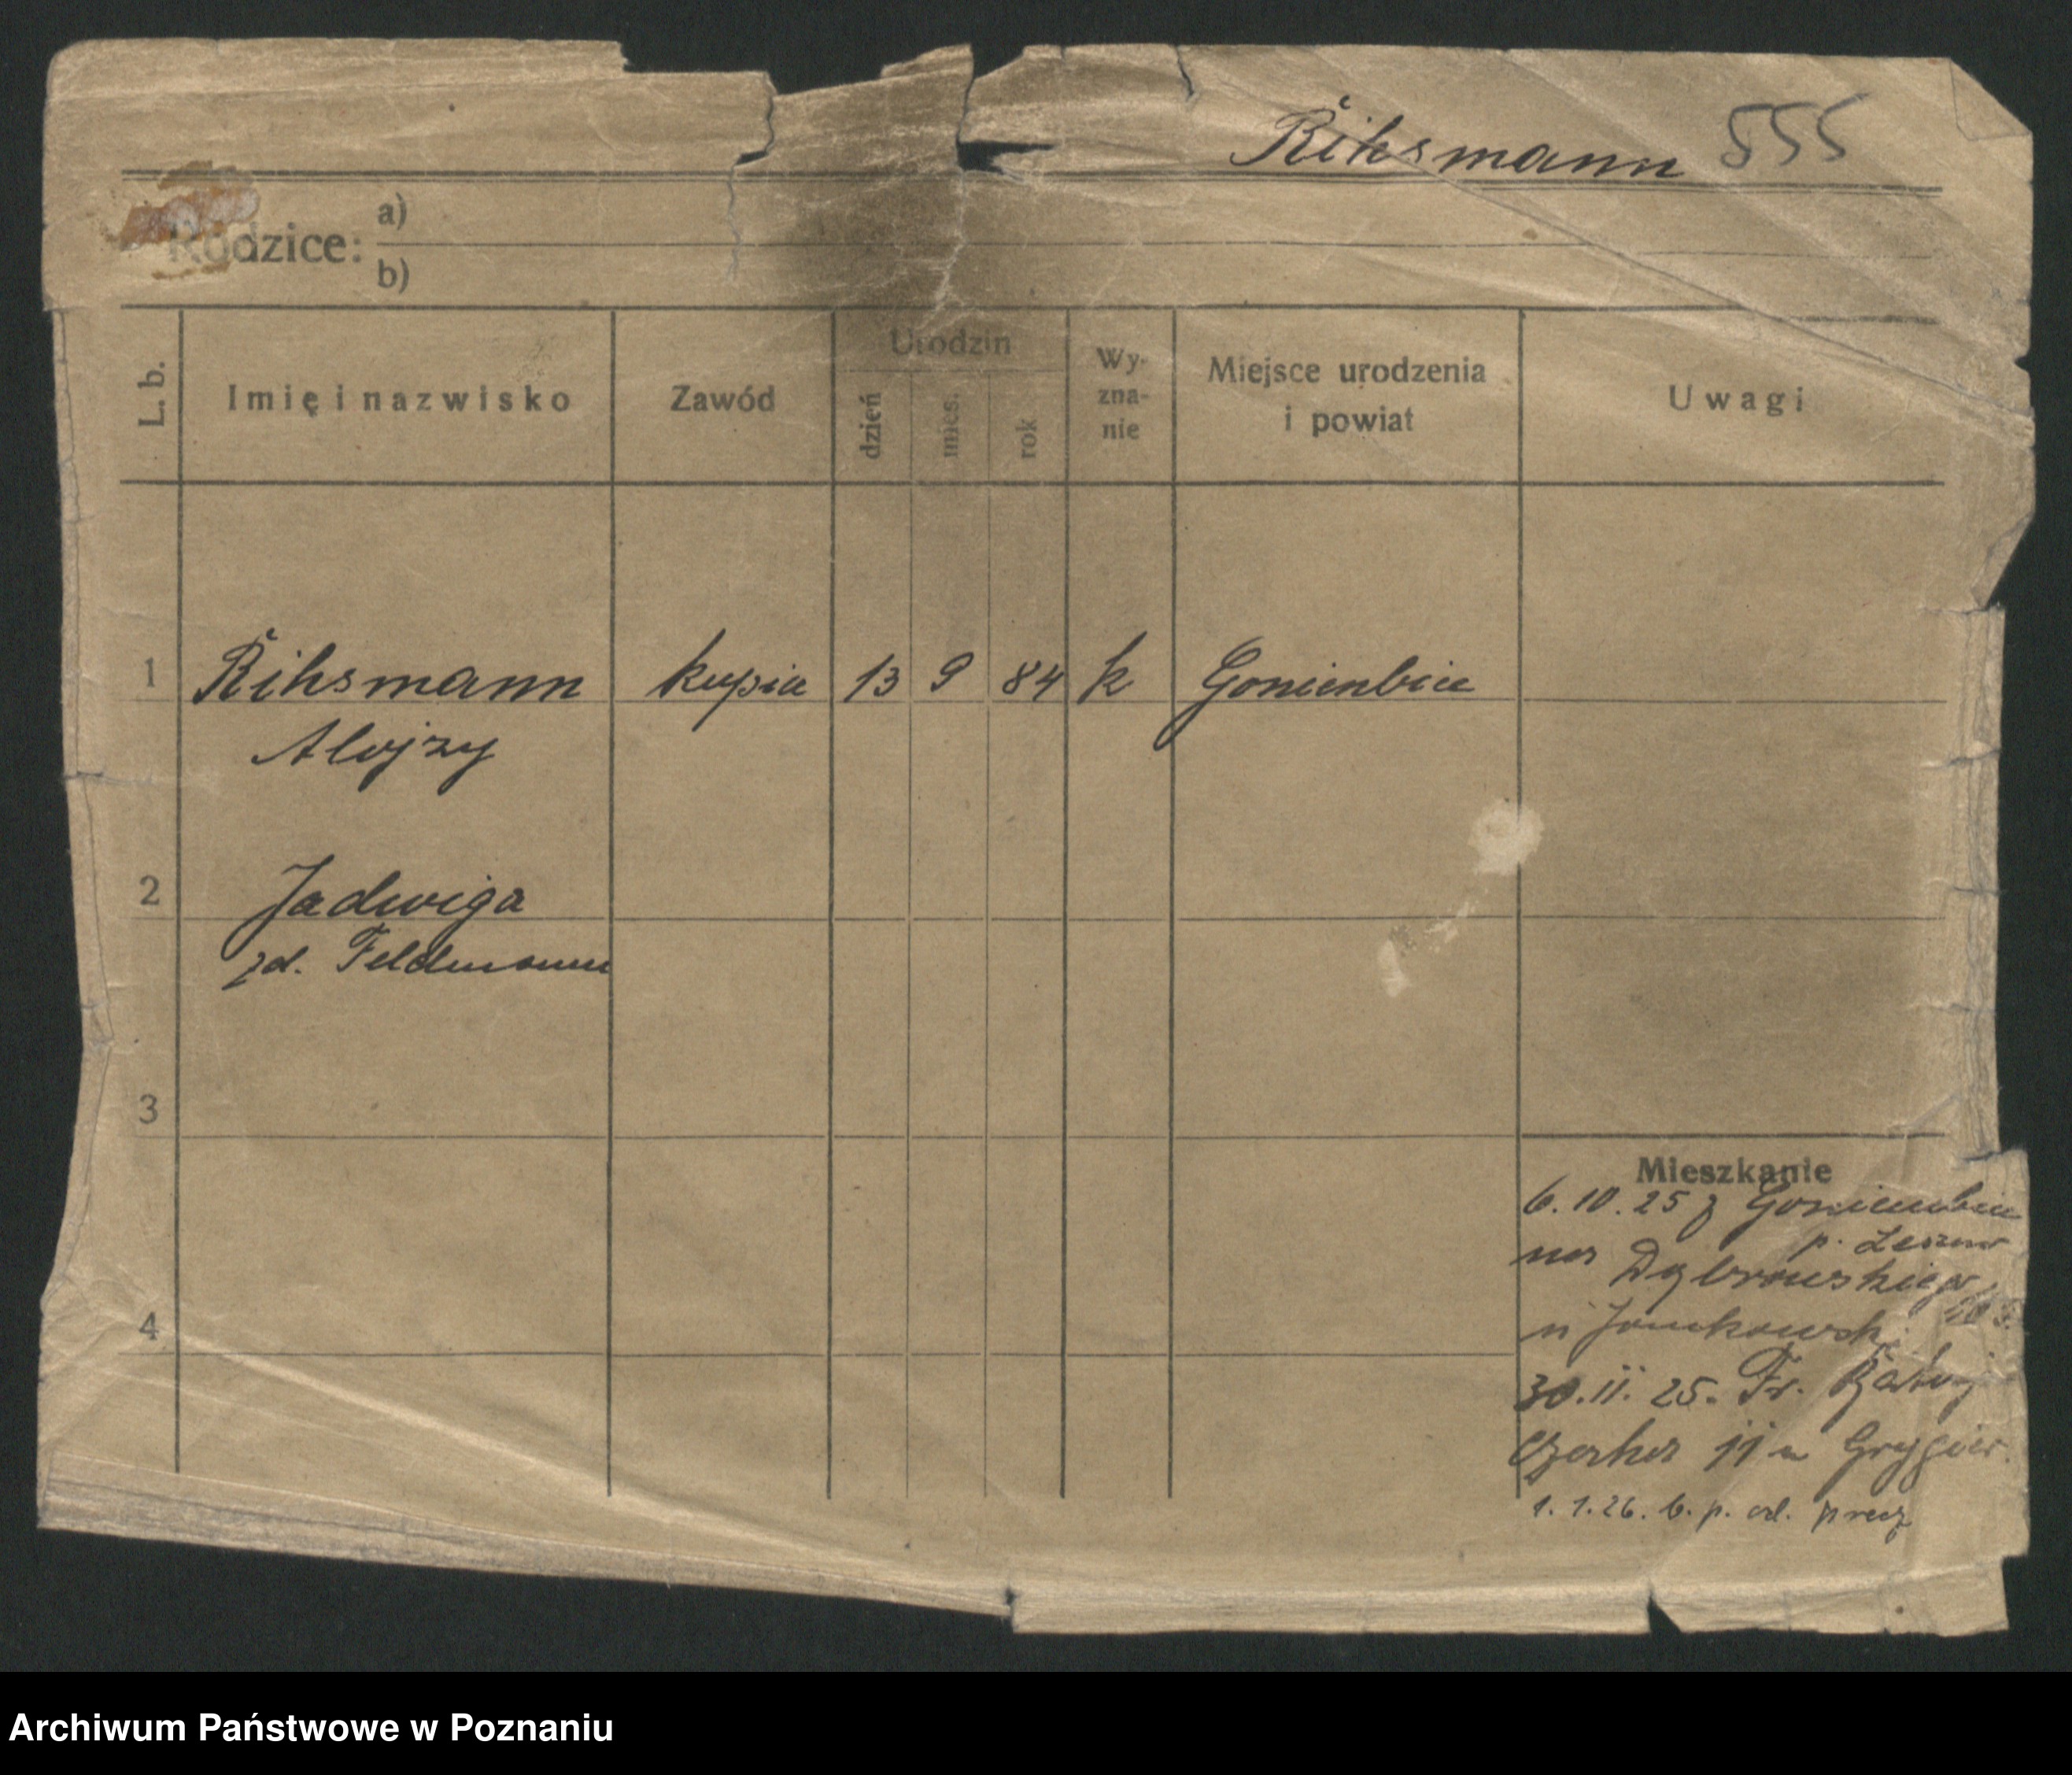 Řihsmann 555
Rodzice: a)
b)
L. b. Imię i nazwisko Zawód Urodzin dzień mies. rok Wy-zna-nie Miejsce urodzenia i powiat Uwagi
1 Řihsmann kupiec 13 9 84 k Goniembice
Alojzy
2 Jadwiga
zd. Feldmann
3
Mieszkanie
6.10.25 z Goniembice
p. Leszno
na Dąbrowskiego
4
u Jankowski
30.11.25. Fr.
11 u
1.1.26. b. p. od. precz
Archiwum Państwowe w Poznaniu